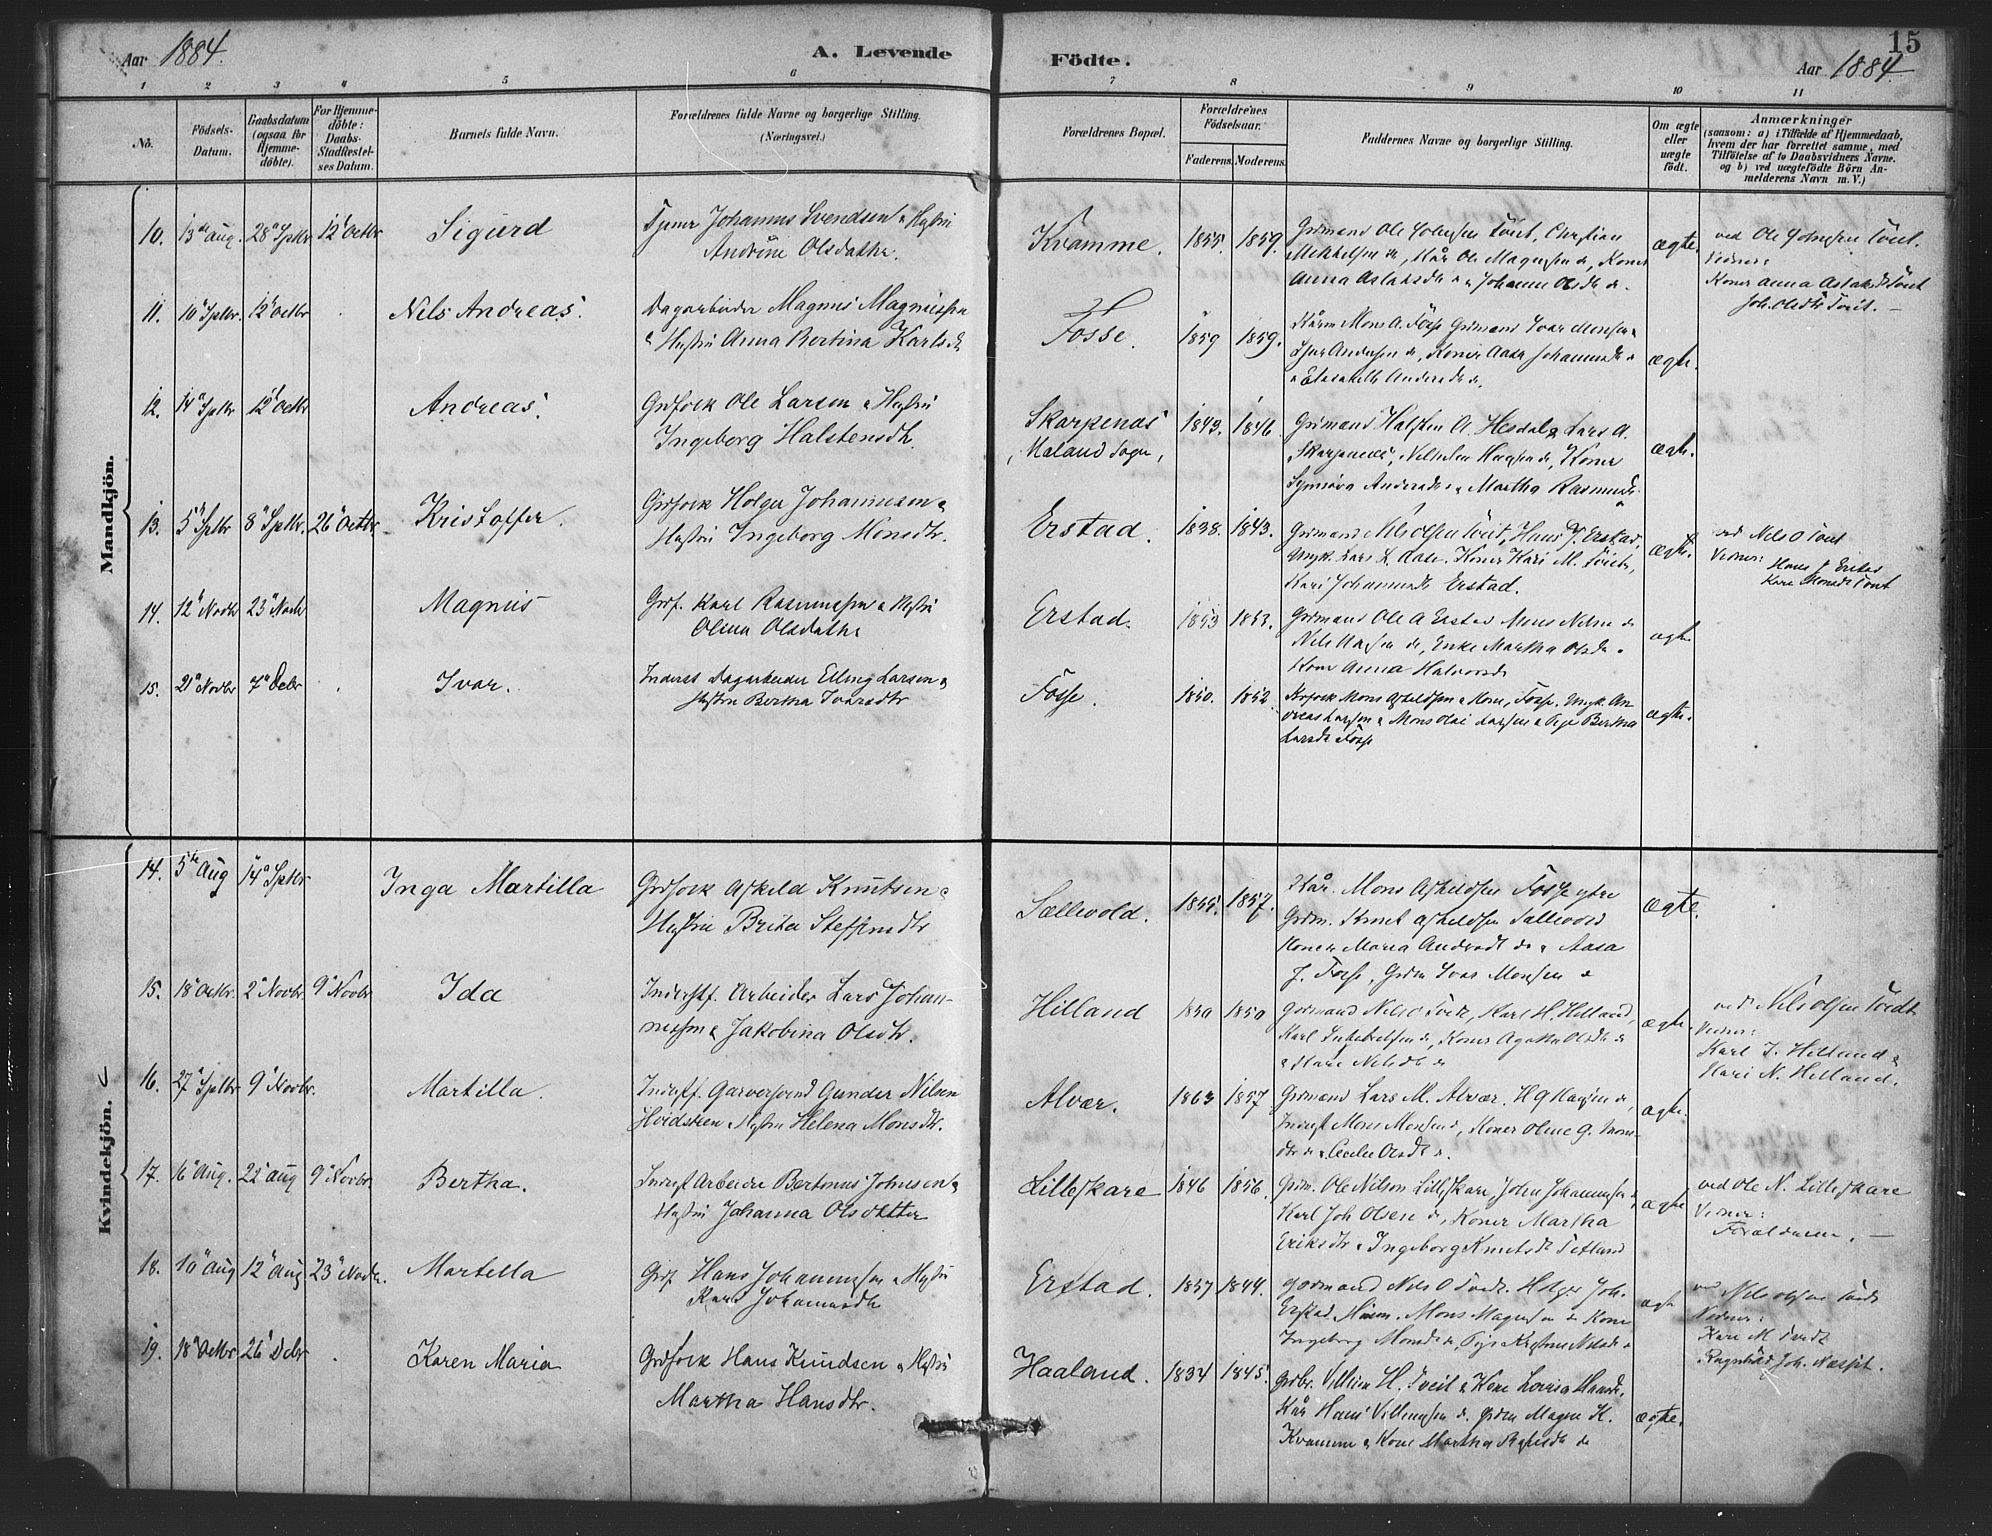 Aar 1884.
A. Levende Födte.
Aar 1884
15
1 2 3 4 5 6 7 8 9 10 11
No.
Födsels-Datum.
Daabsdatum (ogsaa for Hjemme-döbte).
For Hjemme-döbte: Daabs-Stadfæstel-ses Datum.
Barnets fulde Navn.
Forældrenes fulde Navne og borgerlige Stilling. (Næringsvei.)
Forældrenes Bopæl.
Forældrenes Födselsaar.
Faderens. Moderens.
Faddernes Navne og borgerlige Stilling.
Om ægte eller uægte födt.
Anmærkninger
(saasom: a) i Tilfælde af Hjemmedaab,
hvem der har forrettet samme, med
Tilföielse af to Daabsvidners Navne.
og b) ved uægtefödte Börn An-
melderens Navn m. V.)
Mandkjön.
10. 13de Aug. 28" Sptbr 12" Octbr Sigurd
Johannes Svendsen & Hustru
Andrine Olsdatter.
Kvamme. 1855. 1859.
Grdmand Ole Johnsen Tveit, Christian
Mikkelsen do, Kår Ole Magnesen do, Koner
Anna Aslaksdtr & Johanne Olsdtr do.
ægte.
ved Ole Johnsen Tveit.
Vidner:
Koner Anna Aslaksdtr Tveit
Joh. Olsdtr Tveit. —
11. 10" Sptbr. 12" Octbr Nils Andreas.
Dagarbeider Magnus Magnussen
& Hustru Anna Bertina Karlsdtr
Fosse. 1859 1859.
Kårm Mons A. Fosse Grdmand Ivar Monsen
Andersen do, Koner Aasa Johannesdtr do
& Elisabeth Andersdtr do.
ægte.
12. 14" Sptbr 12" Octbr Andreas.
Grdfolk Ole Larsen & Hustru
Ingeborg Halstensdtr.
Skarpenæs
, Mæland Sogn, 1843. 1846
Grdmænd Halsten A. Hesdal & Lars A.
Skarpenæs, Koner
Andersd. & Martha Rasmusdtr
ægte.
13. 5" Sptbr 8" Sptbr. 26" Octbr. Kristoffer.
Grdfolk Holger Johannesen &
Hustru Ingeborg Monsdtr.
Erstad. 1838. 1843.
Grdmænd Nils Olsen Tveit, Hans J. Erstad,
Ungk. Lars L. Dale. Koner Kari M. Tveit,
Kari Johannesdtr Erstad.
ægte.
ved Nils O Tveit
Vidner:
Hans J Erstad
Kari Monsdtr Tveit
14. 12" Novbr 23" Novbr Magnus
Grdf. Karl Rasmussen & Hustru
Olina Olsdatter
Erstad. 1853 1853.
Grdmænd Ole A Erstad Mons Nilsen do
Nils do, Enke Martha Olsdtr
Kone Anna Halvorsdtr
ægte
15. 21" Novbr 7" Decbr Ivar.
Inderst Dagarbeider Elling Larsen &
Hustru Bertha Ivarsdtr
Fosse. 1850. 1852
Mons Askeldsen & Kone, Fosse, Ungk. An-
dreas Larsen & Mons Olai Larsen & Pige Bertha
Larsdtr Fosse
ægte.
Kvindekjön.
14. 5te Aug 14" Sptbr Inga Martilla
Grdfolk Askeld Knutsen &
Hustru Brita Steffensdtr
Sællevold. 1855. 1857.
Kår. Mons Askeldsen Fosse ytre
Grdm. Knut Askeldsen Sallevold
Koner Maria Andersdtr do & Aasa
J. Fosse, Grdm Ivar Monsen do
ægte.
15. 18" Octbr. 2" Novbr. 9" Novbr Ida
Inderstf. Arbeider Lars Johan-
nessen & Jakobina Olsdtr.
Hilland 1850 1850
Grdmænd Nils O Tveit, Karl H. Hilland,
Karl do, Koner Agatha Olsdtr do
& Kari Nilsdtr do
ægte.
ved Nils Olsen Tveidt
Vidner:
Karl J. Hilland &
Kari N. Hilland.
16. 27" Sptbr 9" Novbr. Martilla.
Inderstf. Garversvend Gunder Nilsen
Hvidsteen & Hustru Helena Monsdtr.
Alvær. 1863 1857
Grdmand Lars M. Alvær. do,
Inderst Mons Monsen do, Koner Oline G.
do & Cecilie Olsdtr do.
ægte.
17. 16" Aug. 22" Aug 9" Novbr. Bertha.
Inderst Arbeider Bertinus Johnsen &
Hustru Johanna Olsdatter
Lilleskare 1846 1856.
Grdm. Ole Nilsen Lilleskare, John Johannessen do,
Karl Joh Olsen do, Koner Martha
Eriksdtr & Ingeborg Knutsdtr Tetland
ægte
ved Ole N. Lilleskare
Vidner:
Forældrene. —
18. 10" Aug 12" Aug 23" Novbr. Martilla
Grdf Hans Johannessen & Hustru
Kari Johannesdtr
Erstad. 1857 1844.
Grdmænd Nils O Tveidt. Holger Joh.
Erstad, Mons Magnesen do Kone
Ingeborg Monsdtr do, Pige Kristine Nilsdtr do
ægte
ved Nils Olsen Tveidt
Vidner:
Kari M Tveidt
Ragnhild Joh. Næsset.
19. 18" Octbr 26" Decbr Karen Maria
Grdfolk Hans Knudsen & Hustru
Martha Hansdtr.
Haaland. 1834 1845.
Grdbr. Villum H. Tveit & Kone Lovisa Hansdtr,
Kår Hans Villumsen do. Grdm Magne K.
Kvamme & Kone Martha do
ægte.